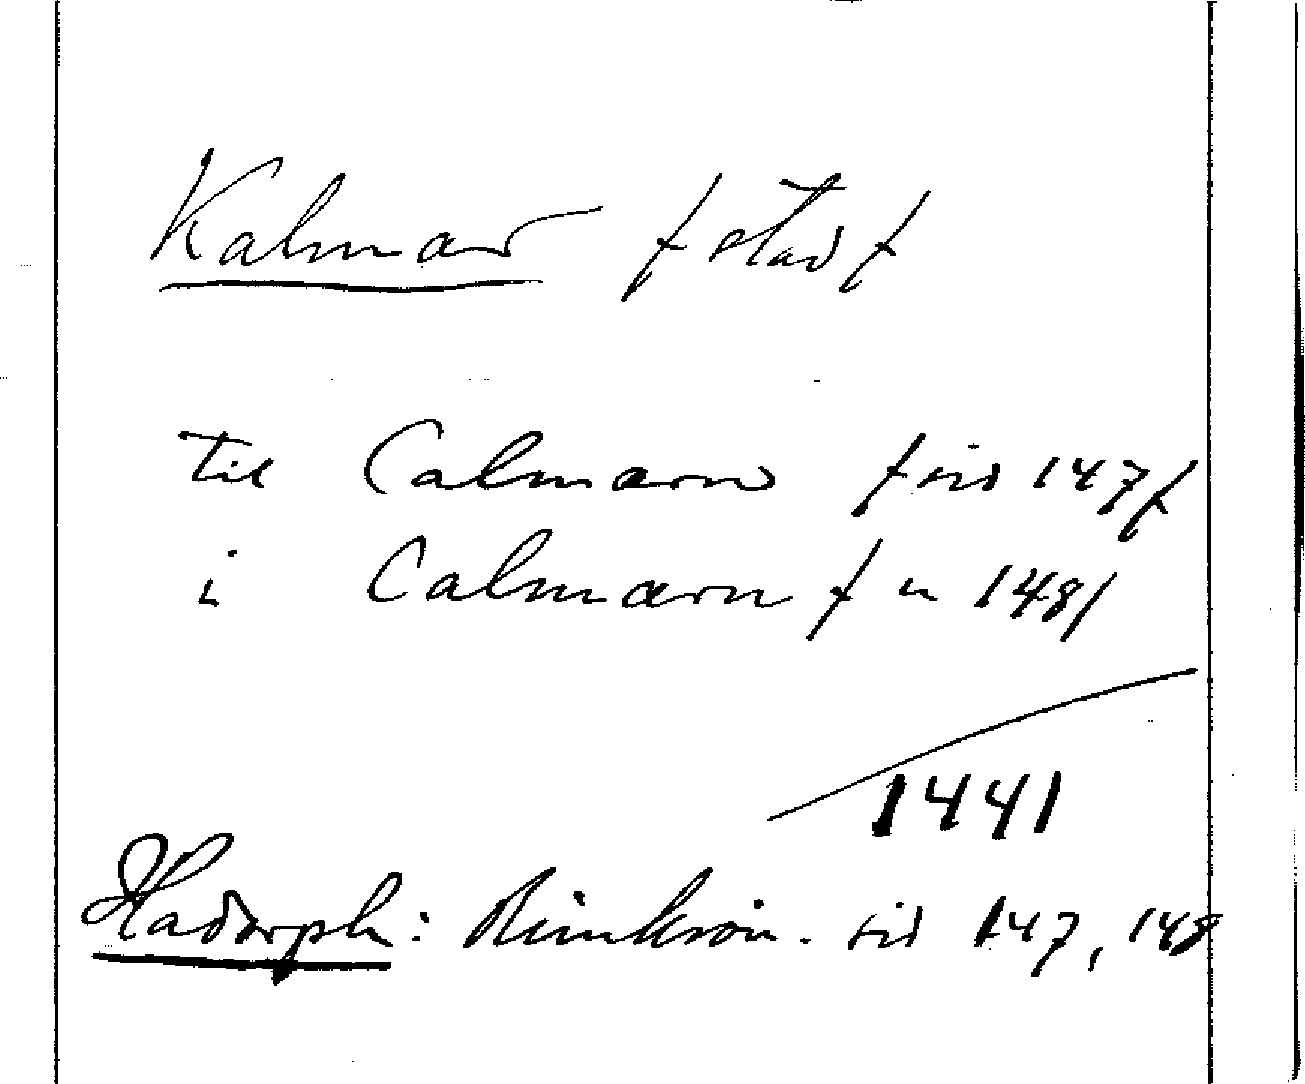 Kalmar / stad /
til Calmarn / sid 147 /
i Calmarn / " 148 /
1441
Hadorph: Rimkrön. sid 147, 148